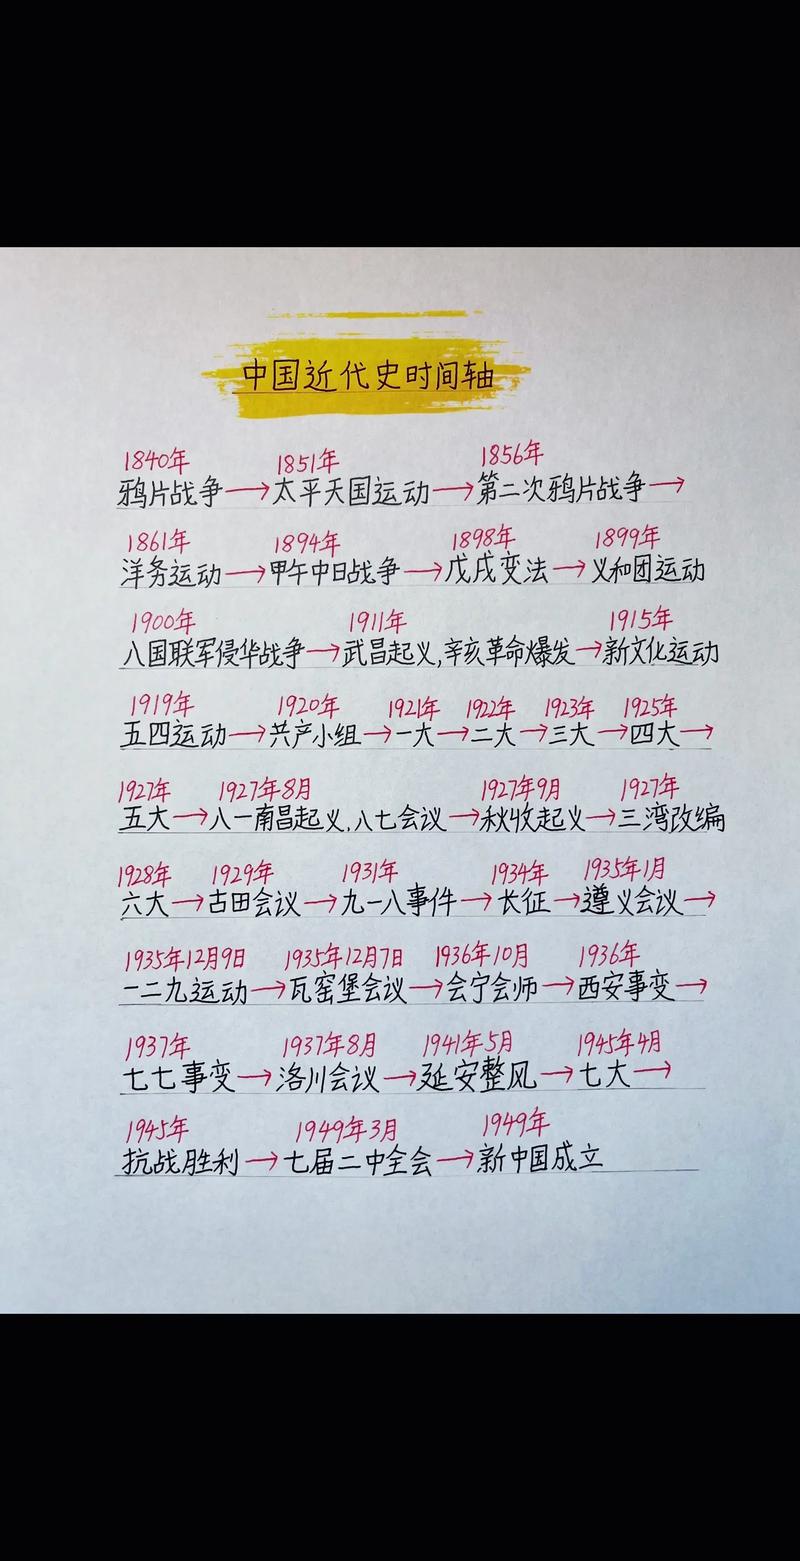 中国近代史时间轴
1840年 1851年 1856年
鸦片战争→太平天国运动→第二次鸦片战争→
1861年 1894年 1898年 1899年
洋务运动→甲午中日战争→戊戌变法→义和团运动
1900年 1911年 1915年
八国联军侵华战争→武昌起义,辛亥革命爆发→新文化运动
1919年 1920年 1921年 1922年 1923年 1925年
五四运动→共产小组→一大→二大→三大→四大→
1927年 1927年8月 1927年9月 1927年
五大→八一南昌起义,八七会议→秋收起义→三湾改编
1928年 1929年 1931年 1934年 1935年1月
六大→古田会议→九一八事件→长征→遵义会议→
1935年12月9日 1935年12月7日 1936年10月 1936年
一二九运动→瓦窑堡会议→会宁会师→西安事变→
1937年 1937年8月 1941年5月 1945年4月
七七事变→洛川会议→延安整风→七大→
1945年 1949年3月 1949年
抗战胜利→七届二中全会→新中国成立